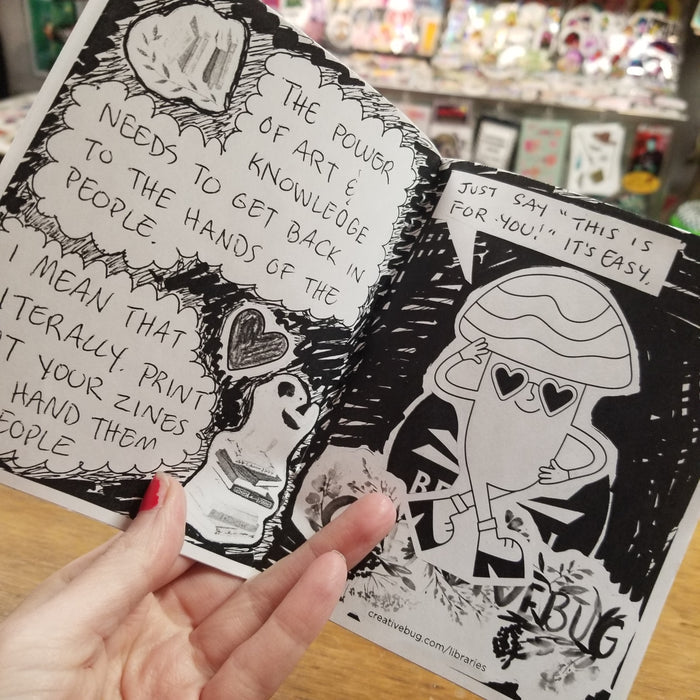 THE POWER
OF ART &
KNOWLEDGE
NEEDS TO GET BACK IN
TO THE HANDS OF THE
PEOPLE.
I MEAN THAT
LITERALLY. PRINT
YOUR ZINES
HAND THEM
PEOPLE
JUST SAY "THIS IS
FOR YOU!" IT'S EASY.
BUG
creativebug.com/libraries